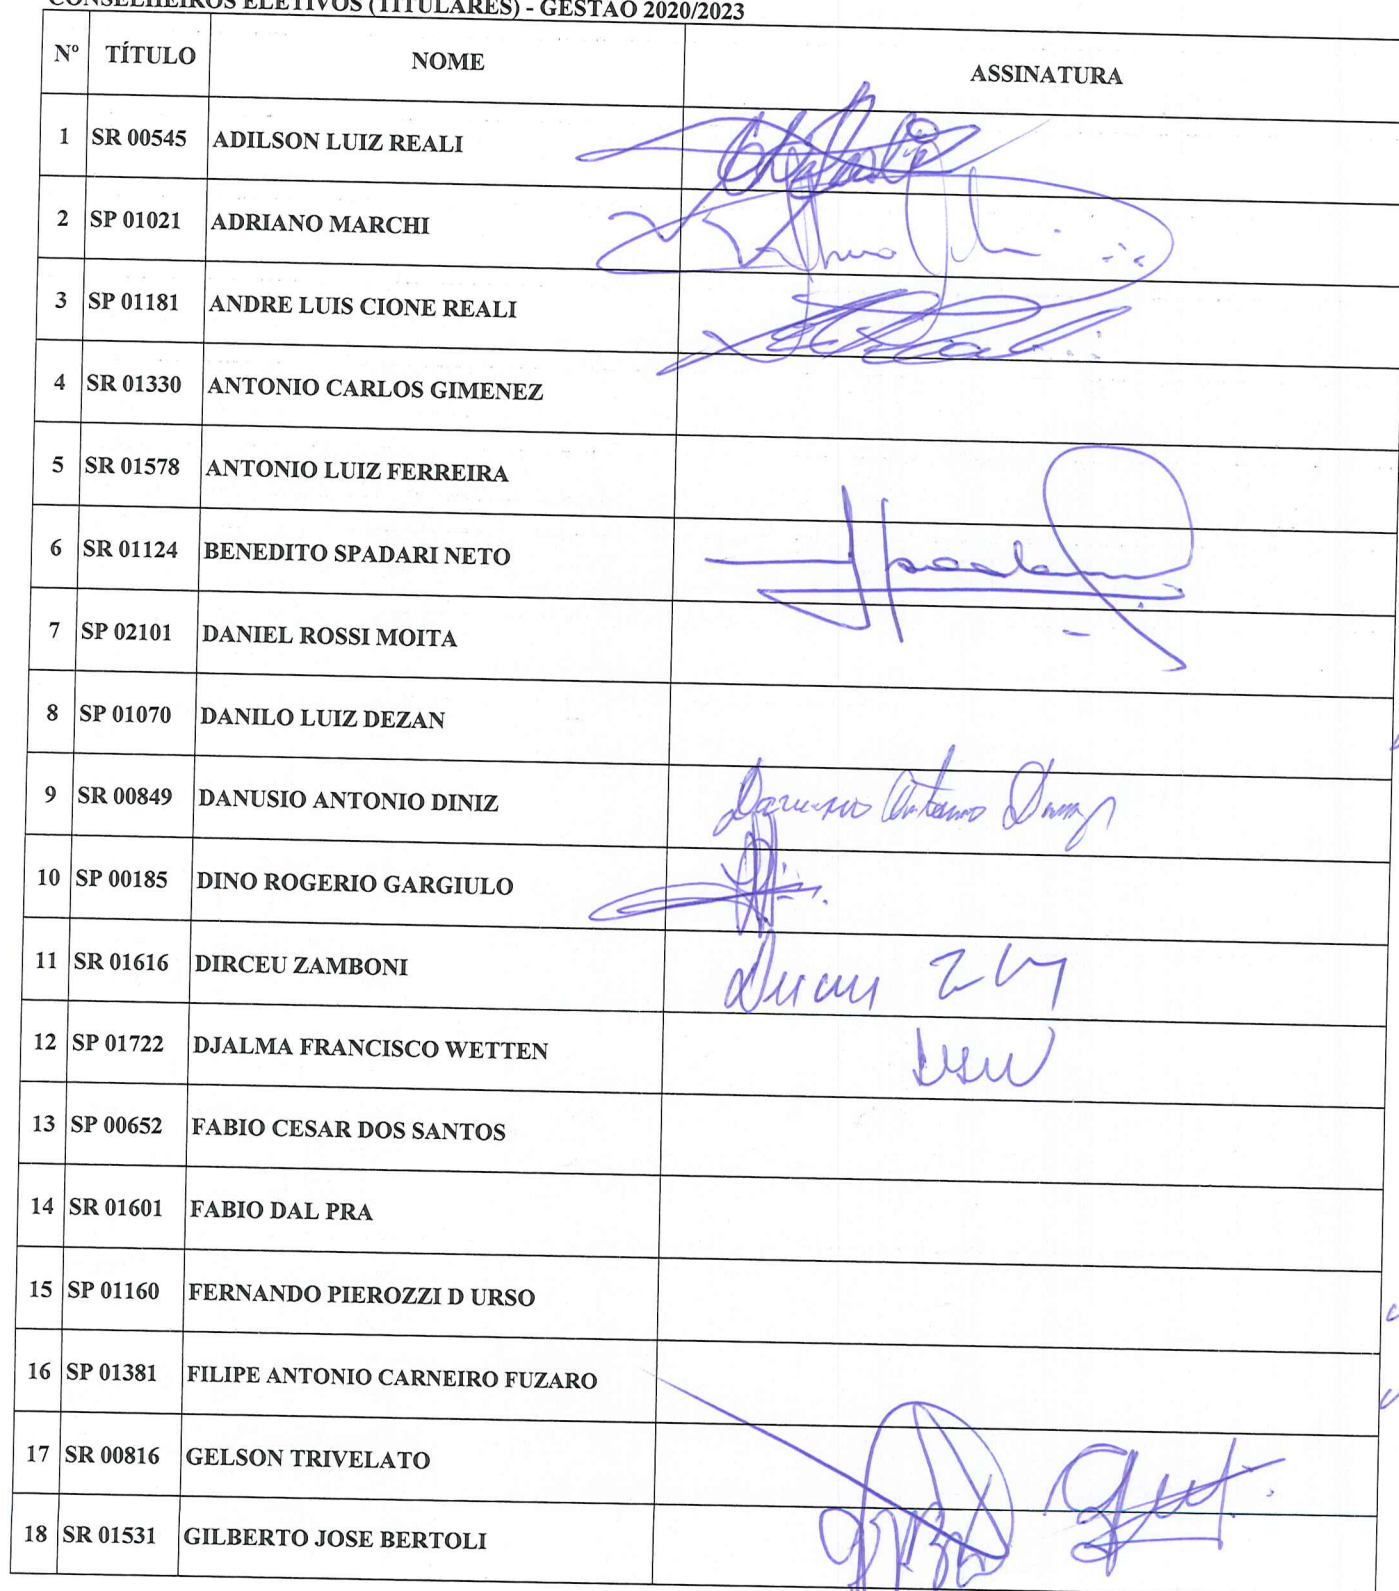 CONSELHEIROS ELETIVOS (TITULARES) - GESTÃO 2020/2023
Nº TÍTULO NOME ASSINATURA
1 SR 00545 ADILSON LUIZ REALI
2 SP 01021 ADRIANO MARCHI
3 SP 01181 ANDRE LUIS CIONE REALI
4 SR 01330 ANTONIO CARLOS GIMENEZ
5 SR 01578 ANTONIO LUIZ FERREIRA
6 SR 01124 BENEDITO SPADARI NETO
7 SP 02101 DANIEL ROSSI MOITA
8 SP 01070 DANILO LUIZ DEZAN
9 SR 00849 DANUSIO ANTONIO DINIZ Danusio Antonio Diniz
10 SP 00185 DINO ROGERIO GARGIULO
11 SR 01616 DIRCEU ZAMBONI Dirceu
12 SP 01722 DJALMA FRANCISCO WETTEN
13 SP 00652 FABIO CESAR DOS SANTOS
14 SR 01601 FABIO DAL PRA
15 SP 01160 FERNANDO PIEROZZI D URSO
16 SP 01381 FILIPE ANTONIO CARNEIRO FUZARO
17 SR 00816 GELSON TRIVELATO
18 SR 01531 GILBERTO JOSE BERTOLI